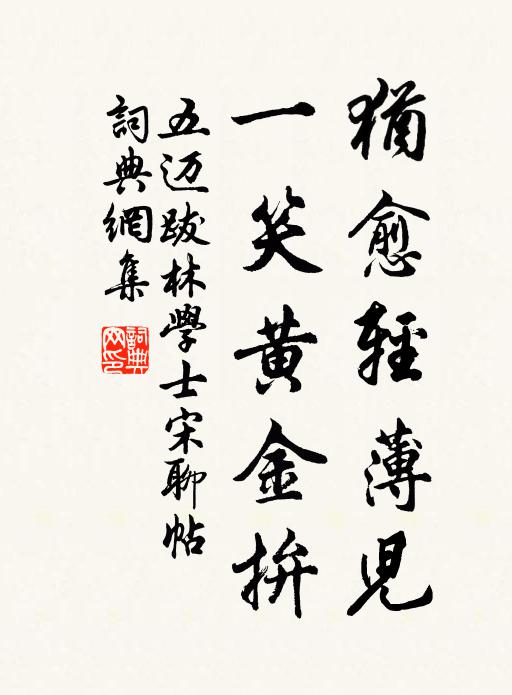 猶愈輕薄兒
一笑黃金拚
五迈跋林學士宋聊帖
詞典網集
詞典網印